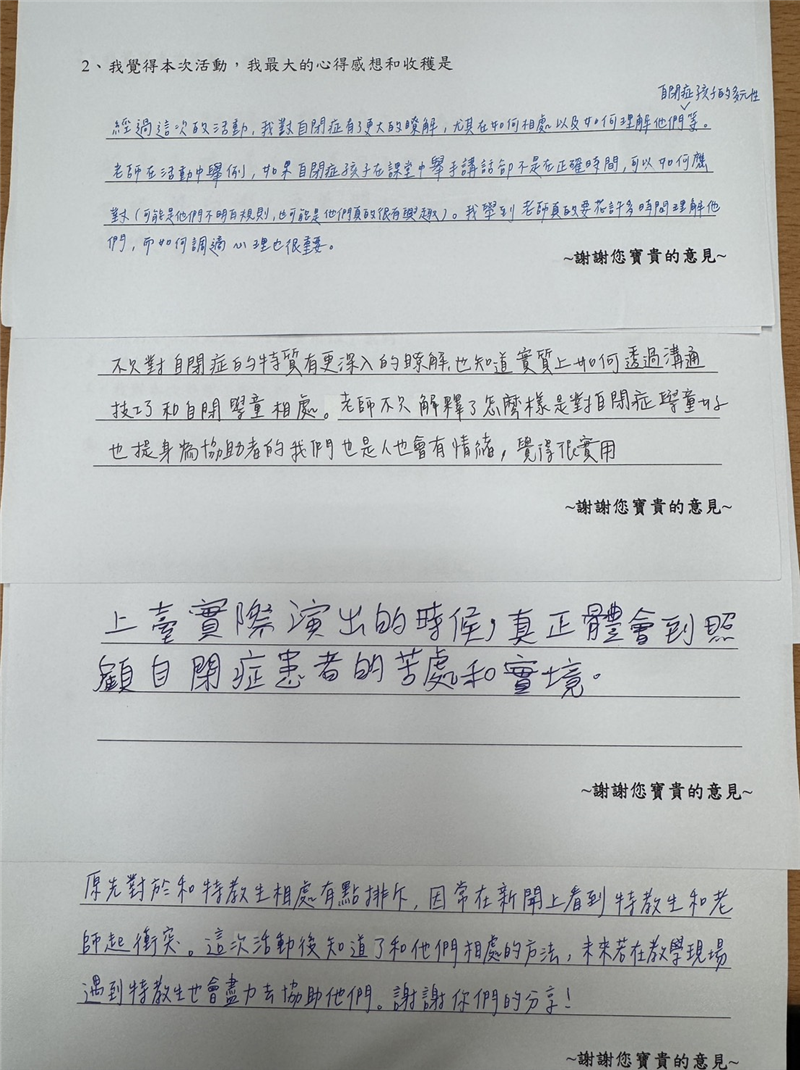 2、我覺得本次活動，我最大的心得感想和收穫是
自閉症孩子的多元性
經過這次的活動，我對自閉症有了更大的瞭解，尤其在如何相處以及如何理解他們等。
老師在活動中舉例，如果自閉症孩子在課堂中舉手講話卻不是在正確時間，可以如何應
對（可能是他們不明白規則，也可能是他們真的很有興趣）。我學到老師真的要花許多時間理解他
們，而如何調適心理也很重要。
~謝謝您寶貴的意見~
不只對自閉症的特質有更深入的瞭解，也知道實質上如何透過溝通
技巧和自閉學童相處。老師不只解釋了怎麼樣是對自閉症學童好
也提身為協助者的我們也是人也會有情緒，覺得很實用
~謝謝您寶貴的意見~
上臺實際演出的時候，真正體會到照
顧自閉症患者的苦處和實境。
~謝謝您寶貴的意見~
原先對於和特教生相處有點排斥，因常在新聞上看到特教生和老
師起衝突。這次活動後知道了和他們相處的方法，未來若在教學現場
遇到特教生也會盡力去協助他們。謝謝你們的分享！
~謝謝您寶貴的意見~